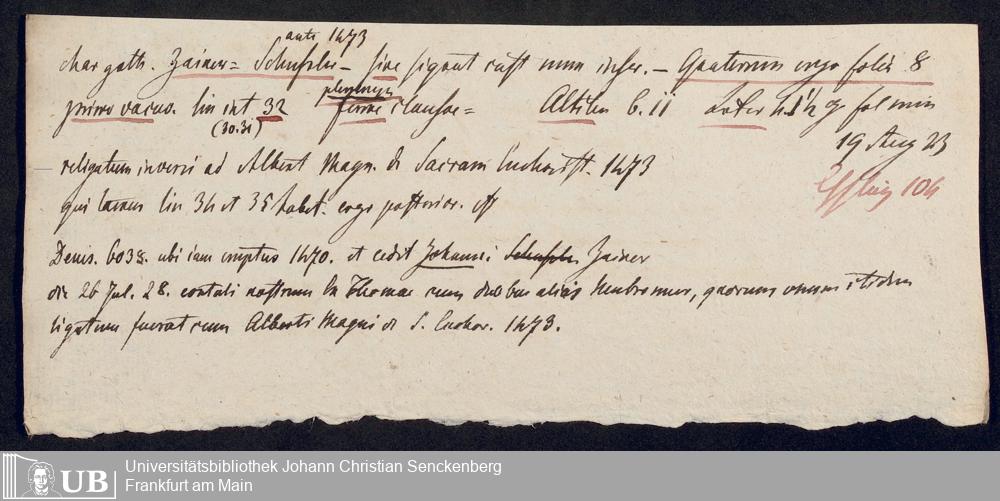 ante 1473
char goth. Zainer = Schussler – sine signat cust num inser. – Quaternum ergo folia 8
primo vacuo. lin int 32 plerumque clausae = Altit b. 11 Later 4 1/2 fol min
(30.31)
19 Aug 23
religatum inversi ad Albert Magn. de Sacram Eucharist. 1473
qui lin 34 et 35 habet. ergo posterior. est
104
Denis. 6038. ubi iam emptus 1470. et cedit Johanni Zainer
die 26 Jul. 28. contuli nostrum in Thomae cum duobus aliis, quorum unum itidem
ligatum fuerat cum Alberti Magni de S. Euchar. 1473.
UB
Universitätsbibliothek Johann Christian Senckenberg
Frankfurt am Main